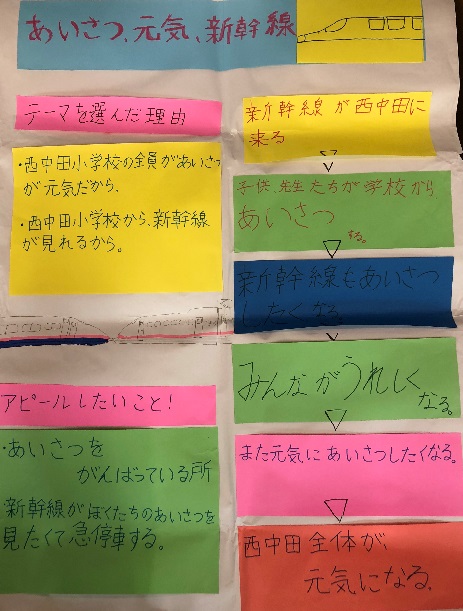 あいさつ、元気、新幹線
テーマを選んだ理由
・西中田小学校の全員があいさつ
が元気だから、
・西中田小学校から、新幹線
が見れるから。
アピールしたいこと!
・あいさつを
がんばっている所
新幹線がぼくたちのあいさつを
見たくて急停車する。
新幹線が西中田に
来る
子供、先生たちが学校から
あいさつ
する。
新幹線もあいさつ
したくなる
みんながうれしく
なる。
また元気にあいさつしたくなる。
西中田全体が、
元気になる、